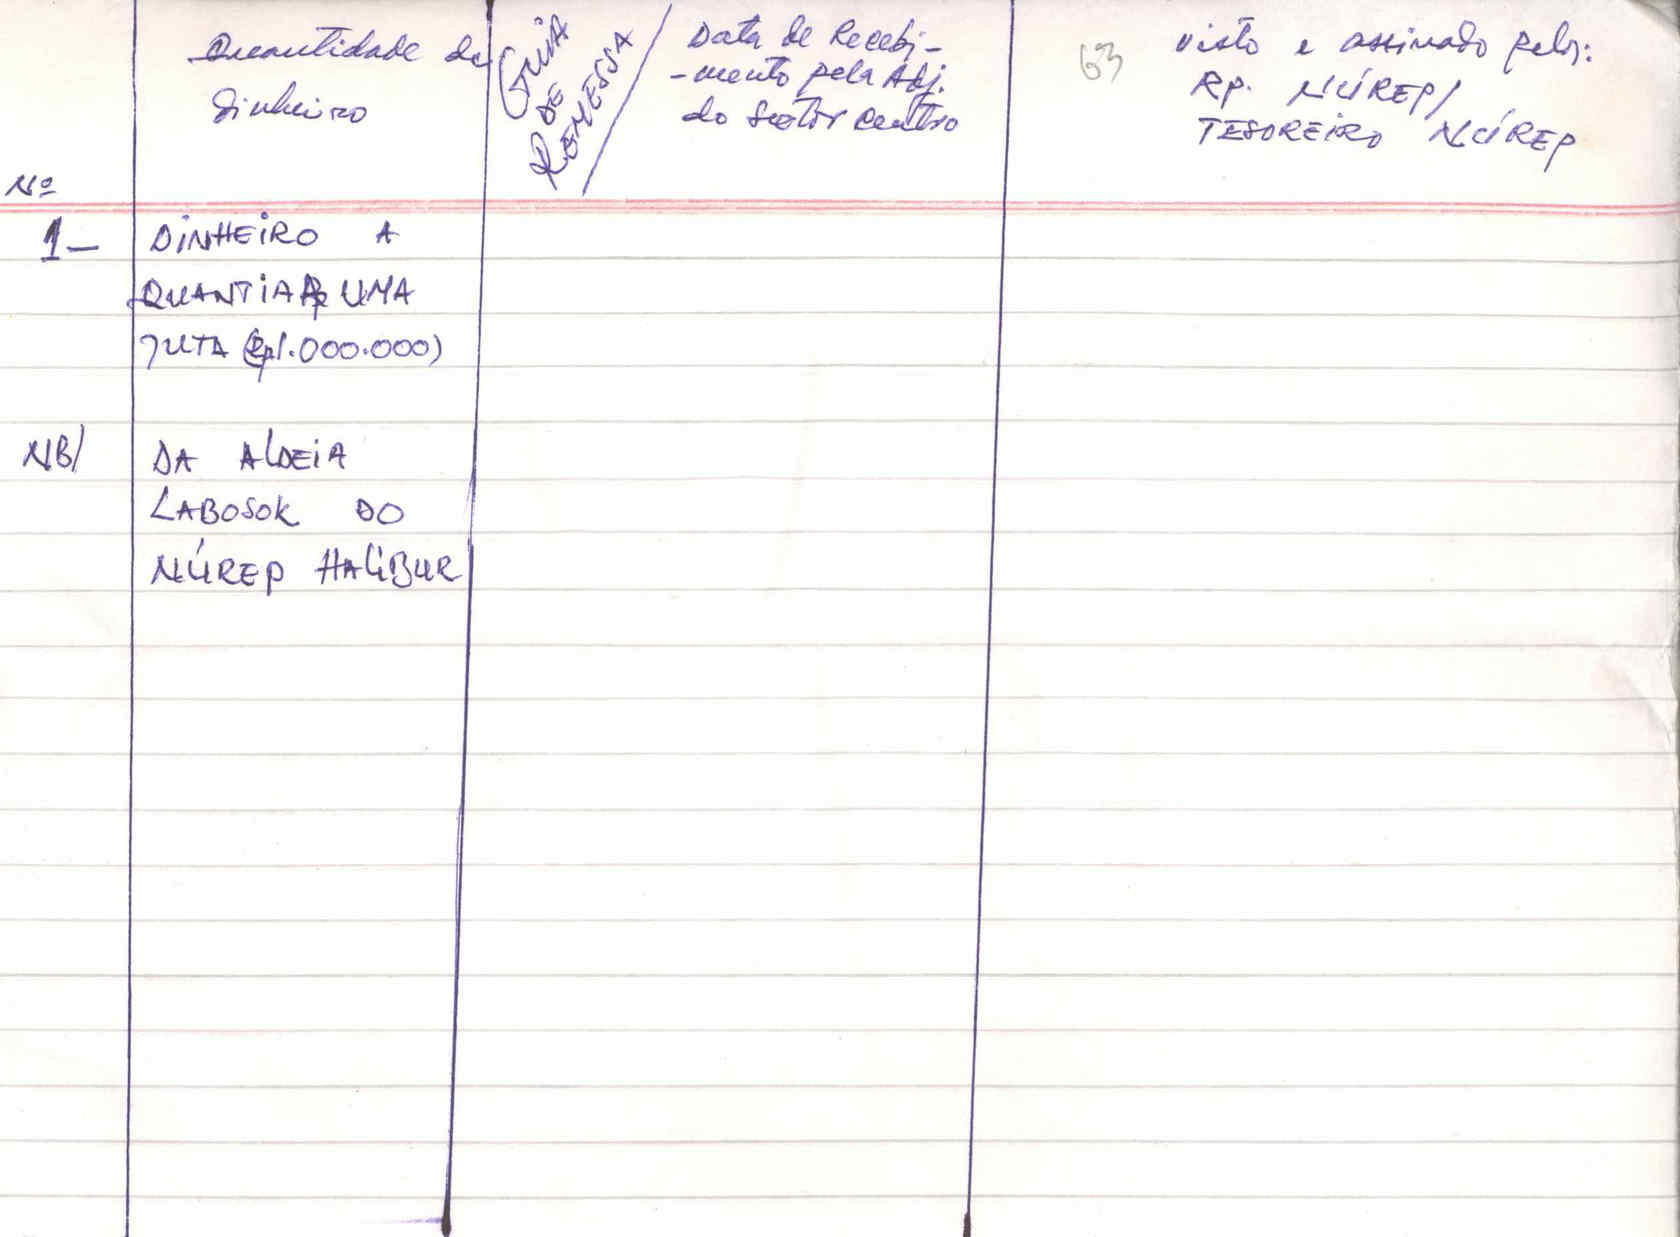 Nº
Quantidade de
dinheiro
GUIA
DE
REMESSA
Data de Recebi-
-mento pela Adj.
do Sector Centro
63
Visto e assinado pelos:
RP. NÚREP/
TESOREIRO NÚREP
1- DINHEIRO A
QUANTIA Rp UMA
JUTA (Rp1.000.000)
NB/ DA ALDEIA
LABOSOK DO
NÚREP HALIBUR